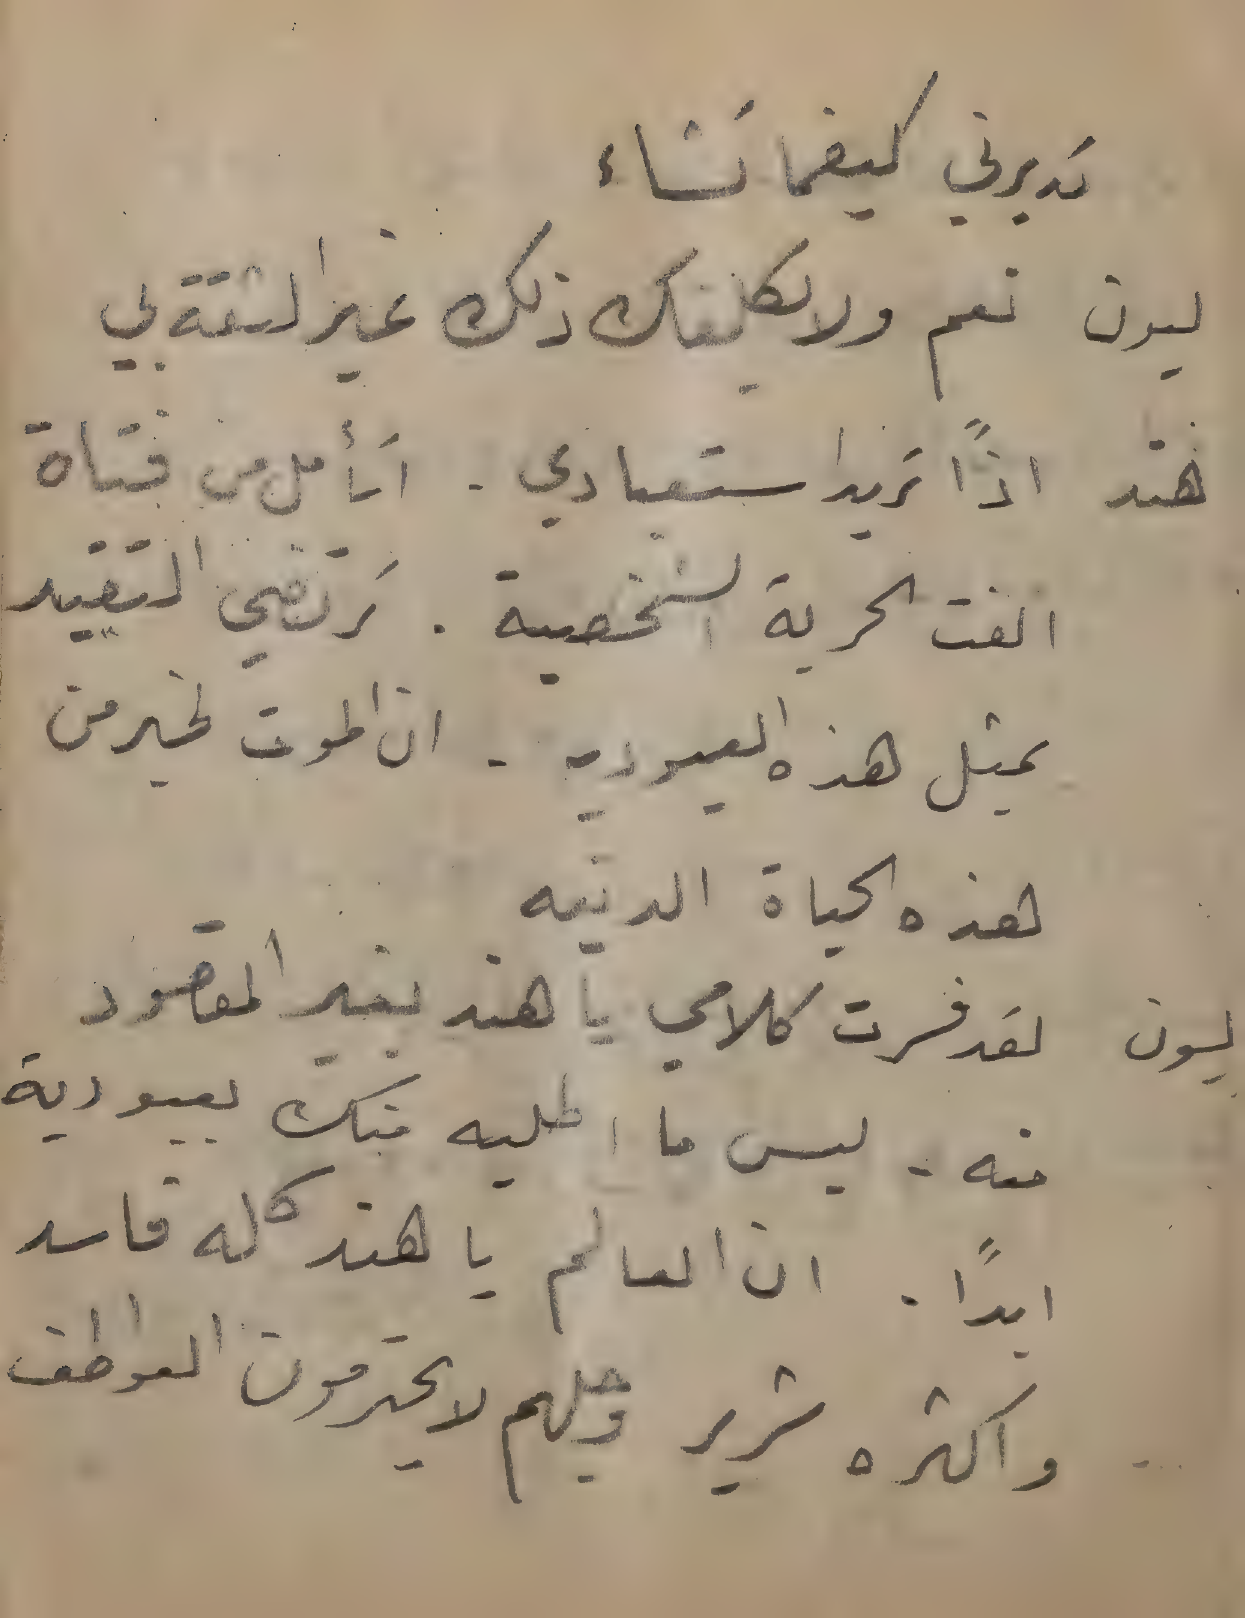 تديرني كيفما تشاء
ليون نعم ولا يكلفك ذلك غير الثقة بي
هند اذًا تريد استعبادي . اتأمل من فتاة
الفت الحرية الشخصية . ترتضي التقييد
بمثل هذه العبوديه . ان الموت لخير من
هذه الحياة الدنيه
ليون لقد فسرت كلامي يا هند بغير المقصود
منه . ليس ما اطلبه منك بعبودية
ابدًا . ان العالم يا هند كله فاسد
واكثره شرير وجلهم لا يحترمون العواطف